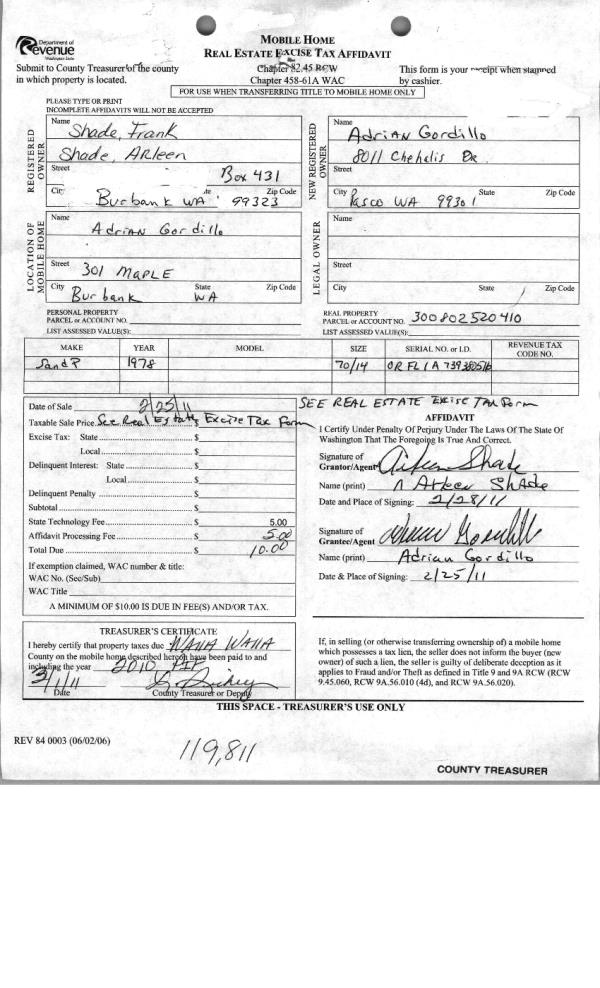 Department of
Revenue
Washington State
MOBILE HOME
REAL ESTATE EXCISE TAX AFFIDAVIT
Submit to County Treasurer of the county
in which property is located.
Chapter 82.45 RCW
Chapter 458-61A WAC
This form is your receipt when stamped
by cashier.
FOR USE WHEN TRANSFERRING TITLE TO MOBILE HOME ONLY
PLEASE TYPE OR PRINT
INCOMPLETE AFFIDAVITS WILL NOT BE ACCEPTED
REGISTERED OWNER
Name
Shade, Frank
Shade, Arleen
Street Box 431
City State Zip Code
Burbank WA 99323
NEW REGISTERED OWNER
Name
Adrian Gordillo
8011 Chehalis Dr.
Street
City State Zip Code
Pasco WA 99301
LOCATION OF MOBILE HOME
Name
Adrian Gordillo
Street 301 MAPLE
City State Zip Code
Burbank WA
LEGAL OWNER
Name
Street
City State Zip Code
PERSONAL PROPERTY
PARCEL or ACCOUNT NO.
LIST ASSESSED VALUE(S):
REAL PROPERTY
PARCEL or ACCOUNT NO. 300802520410
LIST ASSESSED VALUE(S):
MAKE YEAR MODEL SIZE SERIAL NO. or I.D. REVENUE TAX CODE NO.
1978 70/14
Date of Sale 2/25/11
Taxable Sale Price See Real Estate Excise Tax Form
Excise Tax: State $
Local $
Delinquent Interest: State $
Local $
Delinquent Penalty $
Subtotal $
State Technology Fee $ 5.00
Affidavit Processing Fee $ 5.00
Total Due $ 10.00
If exemption claimed, WAC number & title:
WAC No. (Sec/Sub)
WAC Title
A MINIMUM OF $10.00 IS DUE IN FEE(S) AND/OR TAX.
SEE REAL ESTATE Excise Tax Form
AFFIDAVIT
I Certify Under Penalty Of Perjury Under The Laws Of The State Of
Washington That The Foregoing Is True And Correct.
Signature of
Grantor/Agent
Name (print) Arleen Shade
Date and Place of Signing: 2/28/11
Signature of
Grantee/Agent
Name (print) Adrian Gordillo
Date & Place of Signing: 2/25/11
TREASURER'S CERTIFICATE
I hereby certify that property taxes due Walla Walla
County on the mobile home described hereon have been paid to and
including the year 2010
3/1/11
Date County Treasurer or Deputy
If, in selling (or otherwise transferring ownership of) a mobile home
which possesses a tax lien, the seller does not inform the buyer (new
owner) of such a lien, the seller is guilty of deliberate deception as it
applies to Fraud and/or Theft as defined in Title 9 and 9A RCW (RCW
9.45.060, RCW 9A.56.010 (4d), and RCW 9A.56.020).
THIS SPACE - TREASURER'S USE ONLY
REV 84 0003 (06/02/06)
119,811
COUNTY TREASURER